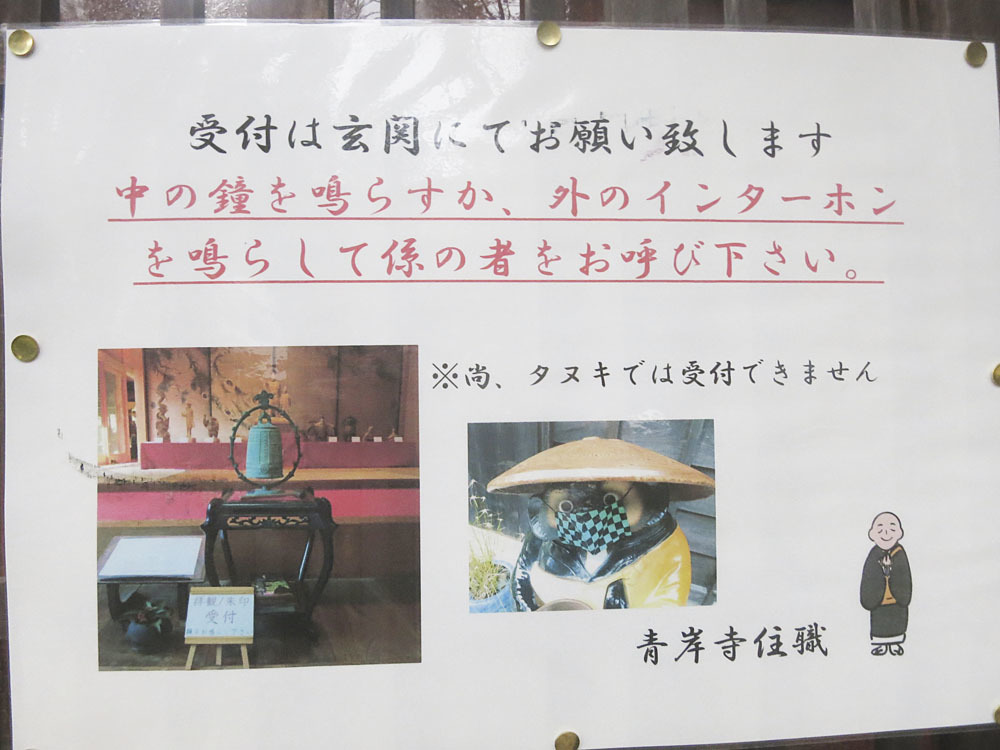 受付は玄関にてお願い致します
中の鐘を鳴らすか、外のインターホン
を鳴らして係の者をお呼び下さい。
※尚、タヌキでは受付できません
拝観/朱印
受付
青岸寺住職